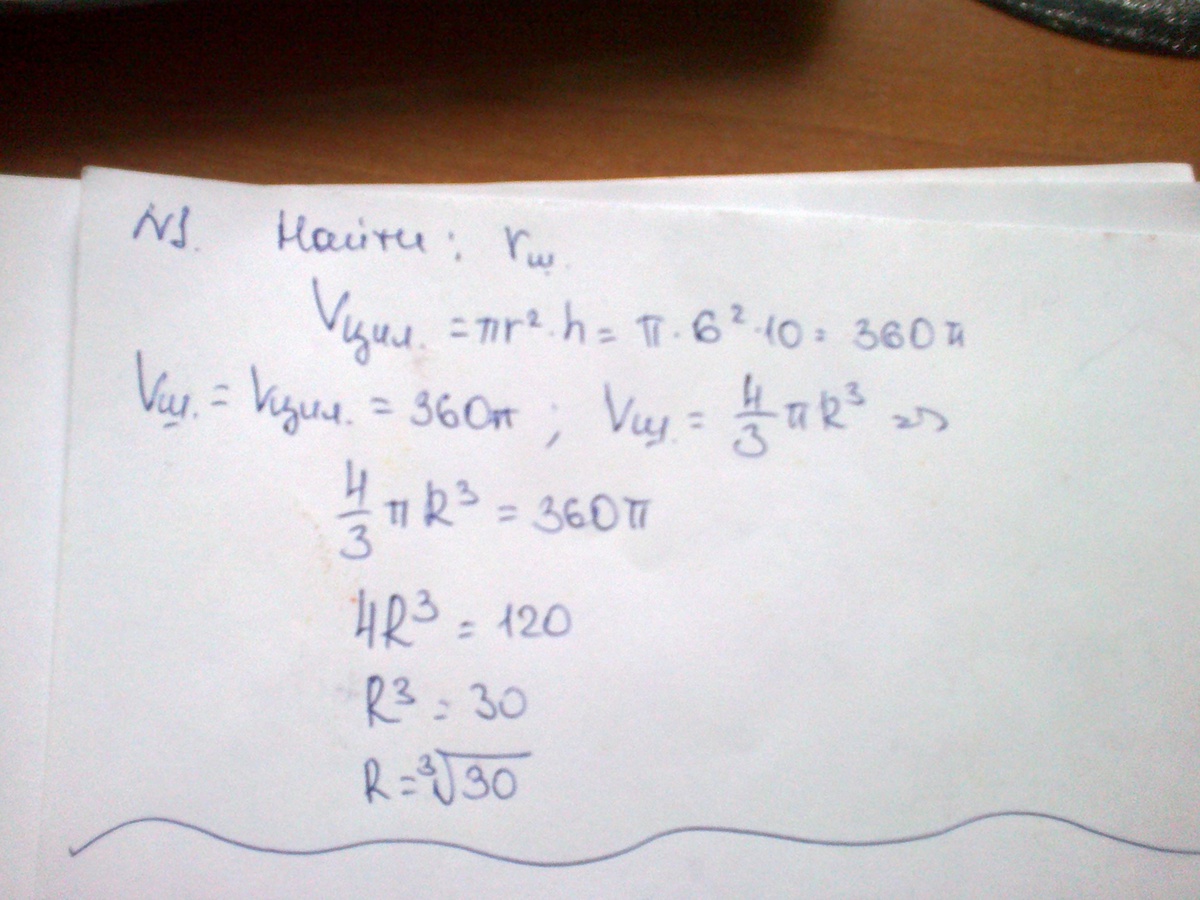 N1. Найти: rш.
Vцил. = πr²·h = π·6²·10 = 360π
Vш. = Vцил. = 360π ; Vш. = 4/3 πR³ =>
4/3 πR³ = 360π
4R³ = 120
R³ = 30
R = ³√30